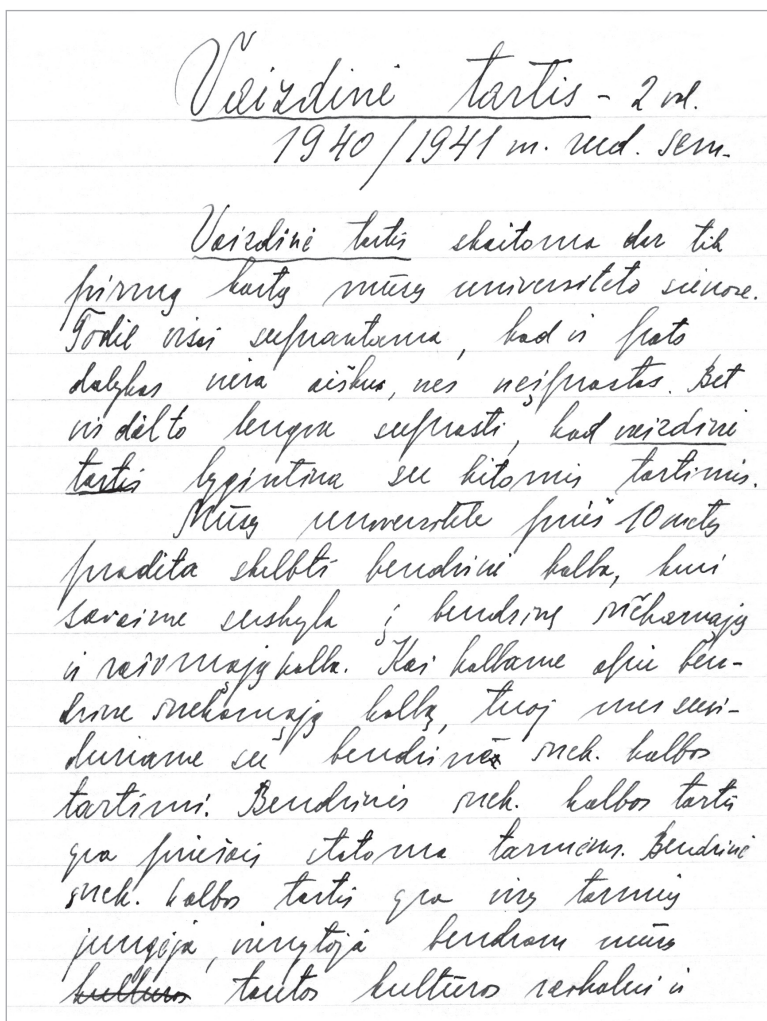 Vaizdinė tartis – 2 val.
1940/1941 m. rud. sem.
Vaizdinė tartis skaitoma dar tik
pirmą kartą mūsų universiteto sienose.
Todėl visai suprantama, kad ir pats
dalykas nėra aiškus, nes neįprastas. Bet
vis dėlto lengva suprasti, kad vaizdinė
tartis lygintina su kitomis tartimis.
Mūsų universitete prieš 10 metų
pradėta skelbti bendrinė kalba, kuri
savaime suskyla į bendrinę šnekamąją
ir rašomąją kalbą. Kai kalbame apie ben-
drinę šnekamąją kalbą, tuoj mes susi-
duriame su bendrinės šnek. kalbos
tartimi. Bendrinės šnek. kalbos tartis
yra priešais statoma tarmėms. Bendrinė
šnek. kalbos tartis yra visų tarmių
jungėja, vienytoja bendram mūsų
kultūros tautos kultūros reikalui ir